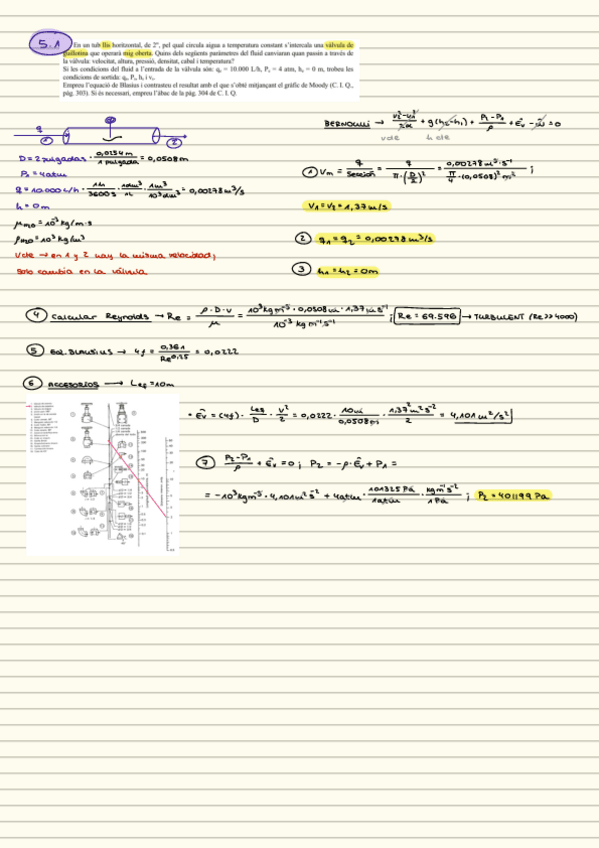 5.1 En un tub llis horitzontal, de 2", pel qual circula aigua a temperatura constant s'intercala una vàlvula de
guillotina que operarà mig oberta. Quins dels següents paràmetres del fluid canviaran quan passin a través de
la vàlvula: velocitat, altura, pressió, densitat, cabal i temperatura?
Si les condicions del fluid a l'entrada de la vàlvula són: qe = 10.000 L/h, Pe = 4 atm, he = 0 m, trobeu les
condicions de sortida: qs, Ps, hs i vs.
Empreu l'equació de Blasius i contrasteu el resultat amb el que s'obté mitjançant el gràfic de Moody (C. I. Q.,
pàg. 303). Si és necessari, empreu l'àbac de la pàg. 304 de C. I. Q.
BERNOULLI → (v2²-v1²)/2α + g(h2-h1) + (P2-P1)/ρ + Êv - ŵ = 0
v cte h cte
q
1 2
D = 2 pulgadas · 0,0254m/1 pulgada = 0,0508m
P1 = 4 atm
q = 10.000 L/h · 1h/3600s · 1dm³/1L · 1m³/10³dm³ = 0,00278 m³/s
h = 0m
μH2O = 10⁻³ kg/m·s
ρH2O = 10³ kg/m³
v cte → en 1 y 2 hay la misma velocidad;
solo cambia en la válvula
① Vm = q/sección = q/(π·(D/2)²) = 0,00278 m³·s⁻¹/(π/4·(0,0508)² m²) ;
V1 = V2 = 1,37 m/s
② q1 = q2 = 0,00278 m³/s
③ h1 = h2 = 0m
④ Calcular Reynolds → Re = ρ·D·v/μ = 10³ kg m⁻³ · 0,0508 m · 1,37 m s⁻¹/10⁻³ kg m⁻¹ s⁻¹ ; Re = 69.596 → TURBULENT (Re >> 4000)
⑤ Eq. BLASIUS → 4f = 0,361/Re^0,25 = 0,0222
⑥ ACCESORIOS → Leq = 10m
• Êv = (4f) · Leq/D · v²/2 = 0,0222 · 10m/0,0508m · 1,37² m² s⁻²/2 = 4,101 m²/s²
⑦ (P2-P1)/ρ + Êv = 0 ; P2 = -ρ·Êv + P1 =
= -10³ kg m⁻³ · 4,101 m² s⁻² + 4 atm · 101325 Pa/1 atm · kg m⁻¹ s⁻²/1 Pa ; P2 = 401199 Pa